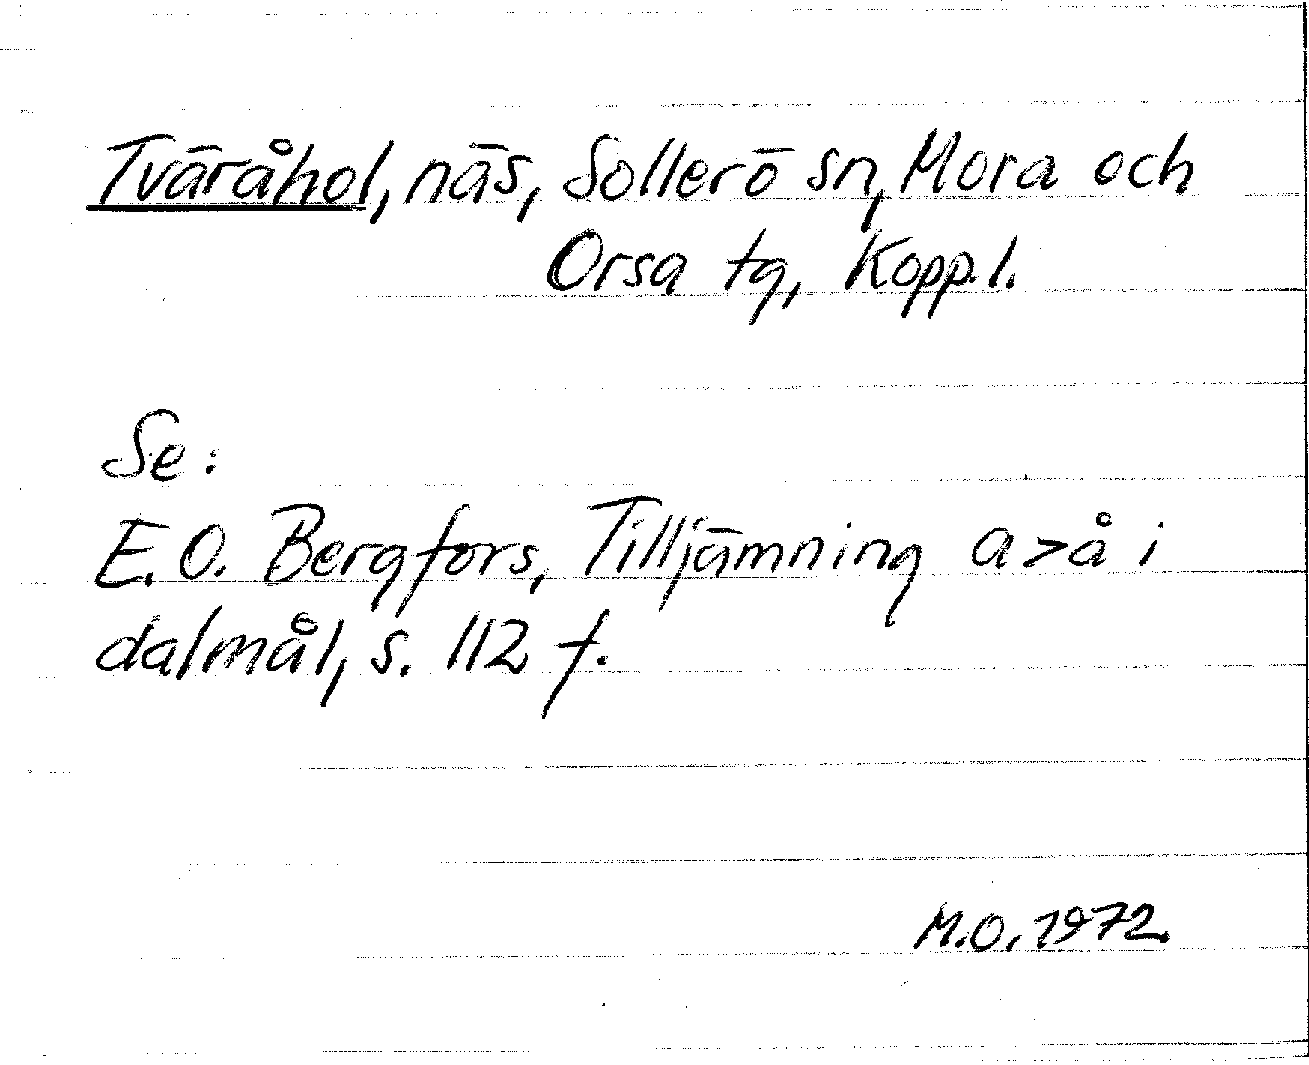 Tväråhol, näs, Sollerö sn, Mora och
Orsa tg, Kopp.l.
Se:
E.O. Bergfors, Tilljämning a>å i
dalmål, s. 112 f.
M.O. 1972.